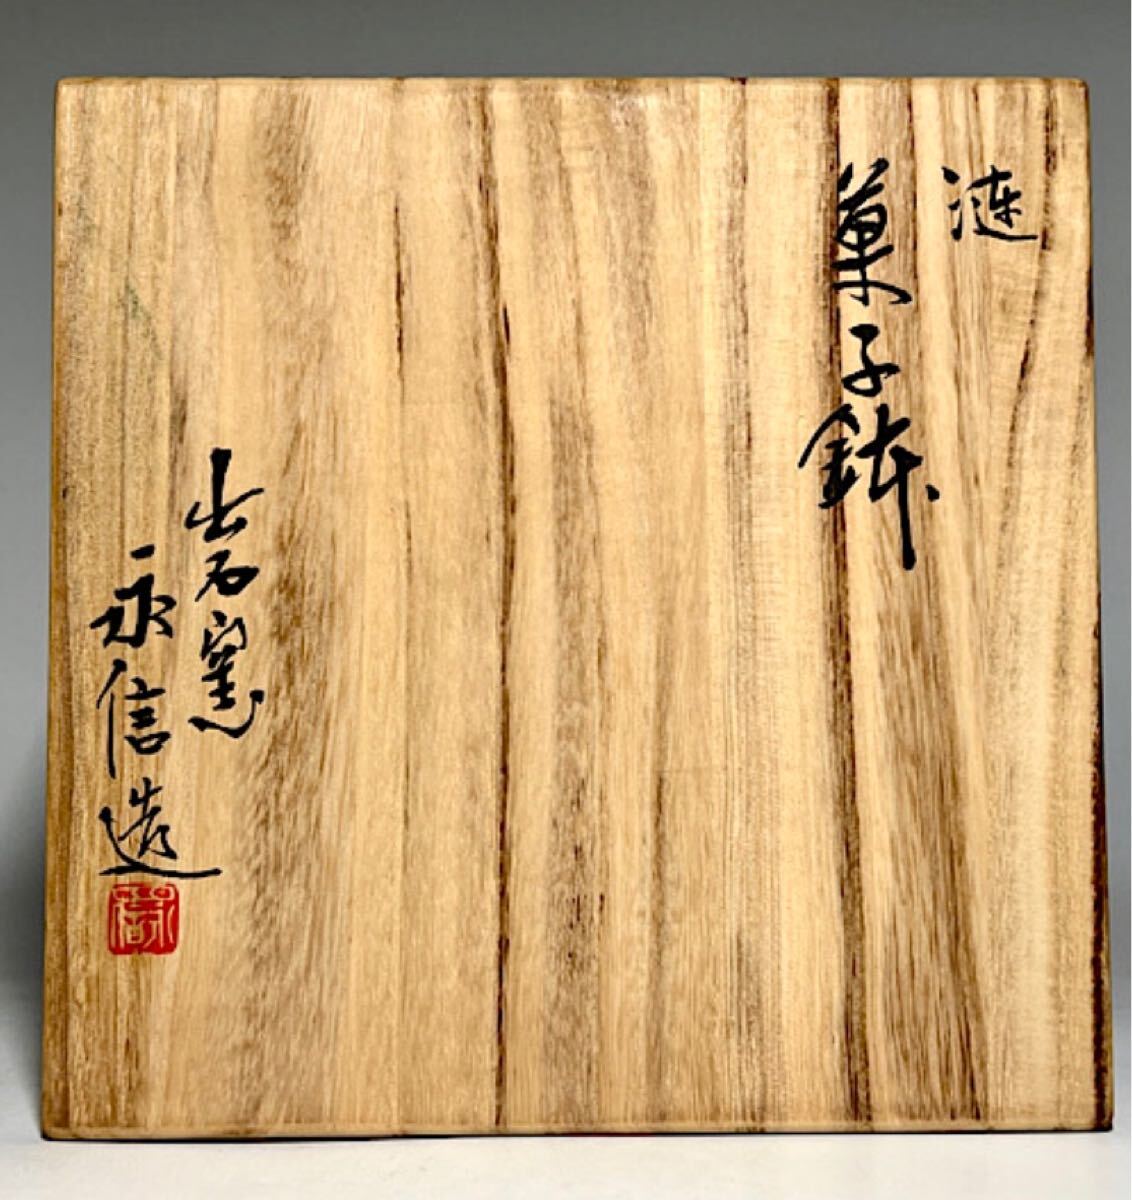 漣
菓子鉢
出石窯
永信造
永信